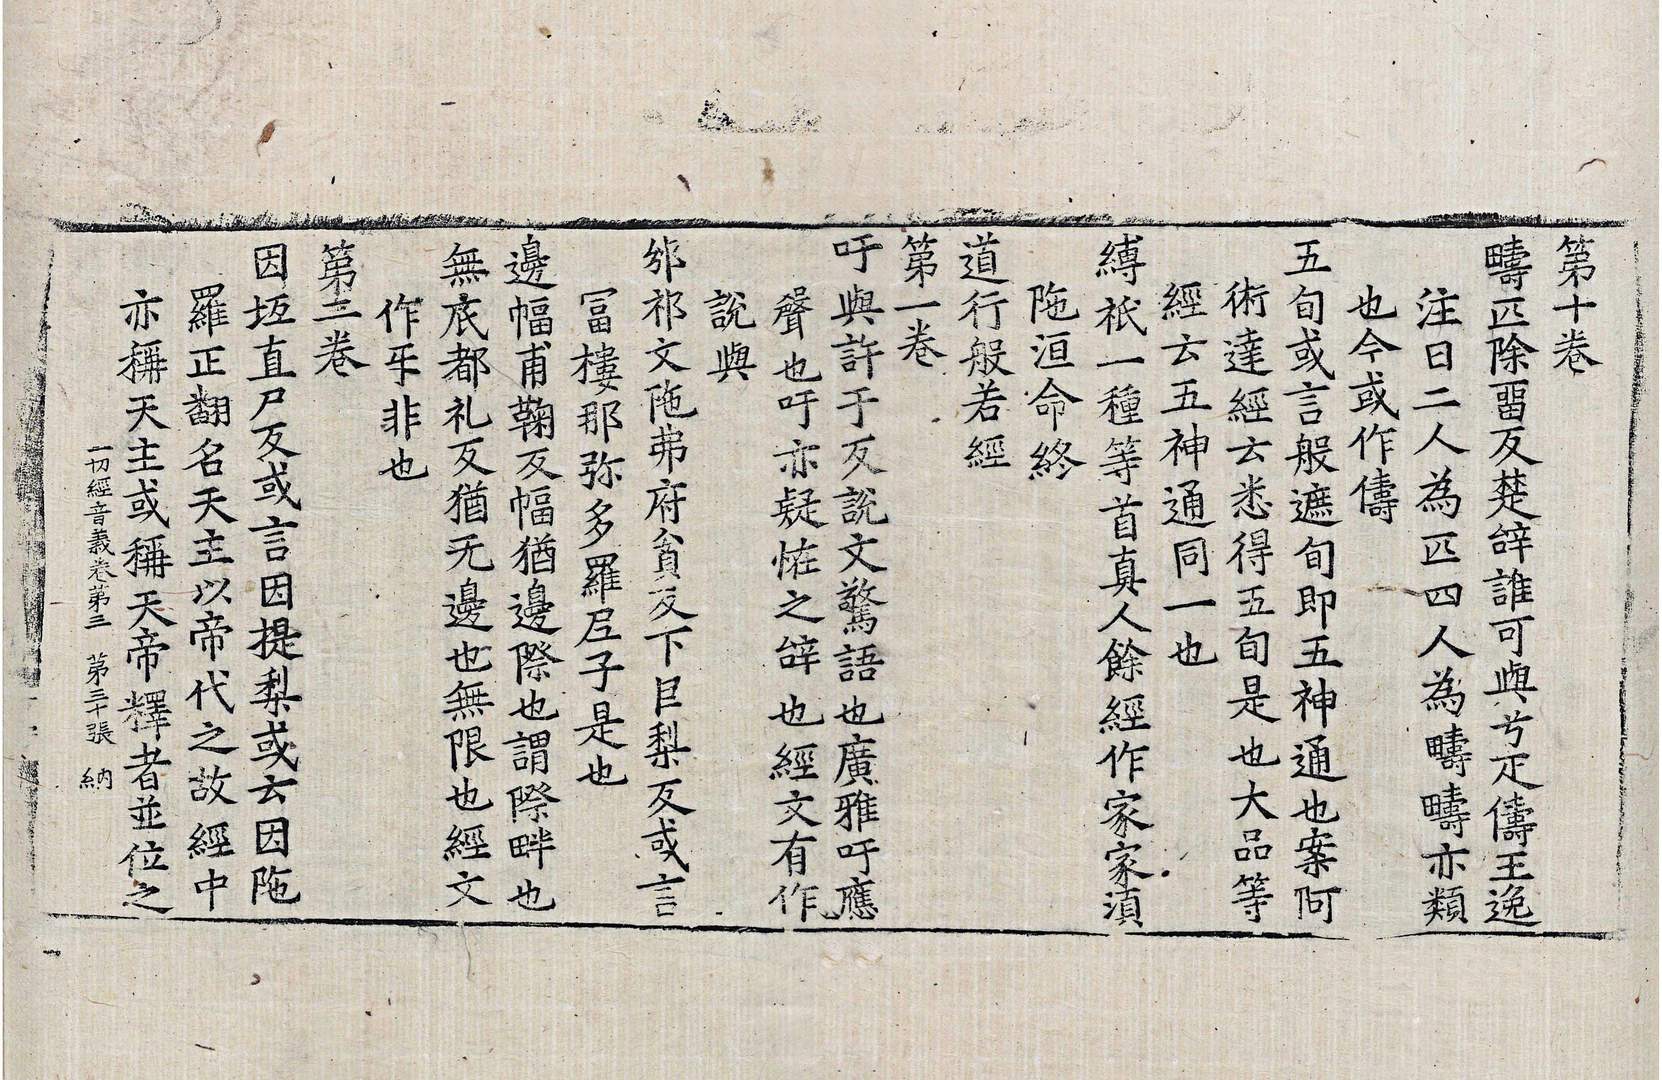 第十卷
疇匹除畱反楚辝誰可與兮疋儔王逸
注曰二人為匹四人為疇疇亦類
也今或作儔
五旬或言般遮旬即五神通也案阿
術達經云悉得五旬是也大品等
經云五神通同一也
縛祇一種等首真人餘經作家家湏
陁洹命終
道行般若經
第一卷
吁與許于反說文驚語也廣雅吁應
聲也吁亦疑恠之辝也經文有作
說與
邠祁文陁弗府貧反下巨梨反或言
冨樓那弥多羅尼子是也
邊幅甫鞠反幅猶邊際也謂際畔也
無底都礼反猶无邊也無限也經文
作𢇇非也
第二卷
因坻直尸反或言因提梨或云因陁
羅正翻名天主以帝代之故經中
亦稱天主或稱天帝釋者並位之
一切經音義卷第三 第三十張 納